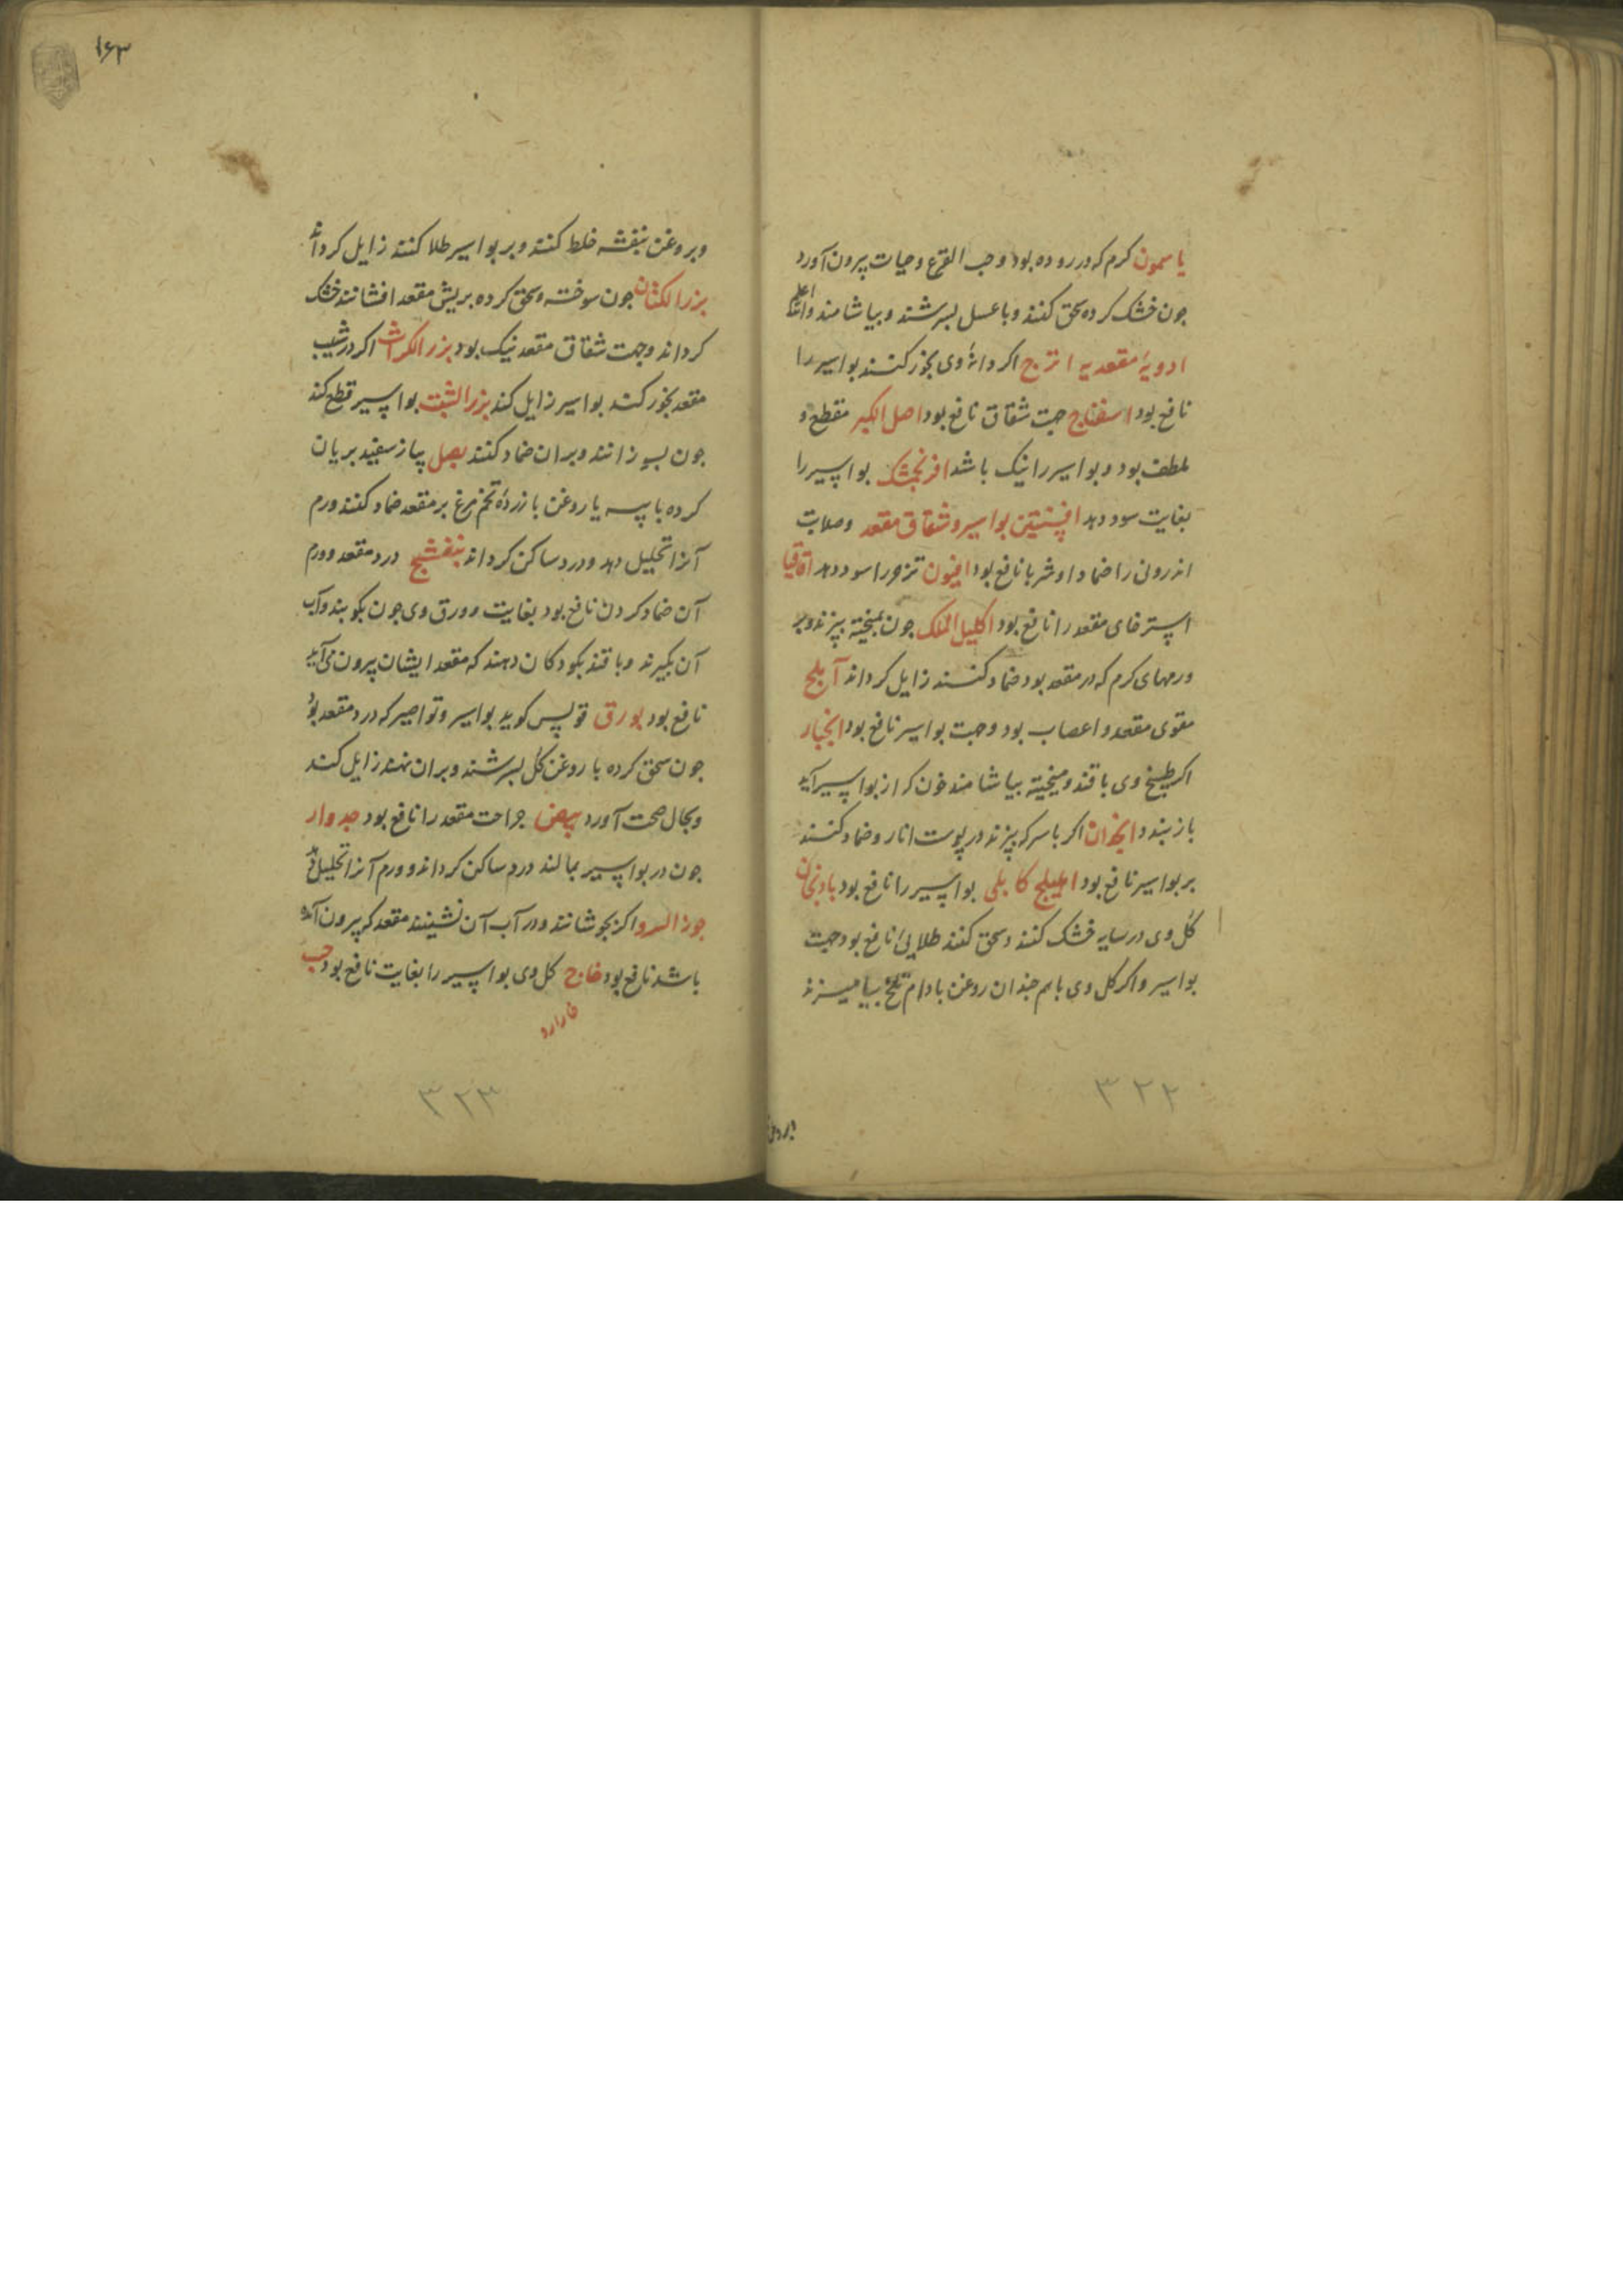 یاسمون کرم که در روده بود و حب القرع و حیات بیرون آورد
جون خشک کرده سحق کنند و با عسل بسرشند و بیاشامند والله اعلم
ادویهٔ مقعدیه اترج اکر دانهٔ وی بخور کنند بواسیر را
نافع بود اسفناج جهت شقاق نافع بود اصل الکبر مقطع و
ملطف بود و بواسیر را نیک باشد افرنجمشک بواسیر را
بغایت سود دهد افسنتین بواسیر و شقاق مقعد و صلابت
اندرون را ضمادا و شربا نافع بود افیون تزحر را سود دهد اقاقیا
استرخای مقعد را نافع بود اکلیل الملک جون بمیخته بپزند و بر
ورمهای کرم که در مقعد بود ضماد کنند زایل کرداند آملج
مقوی مقعد و اعصاب بود و جهت بواسیر نافع بود انجبار
اکر طبیخ وی با قند و میخیته بیاشامند خون که از بواسیر آید
باز بندد انجدان اکر با سرکه بپزند در پوست انار و ضماد کنند
بر بواسیر نافع بود اهلیلج کابلی بواسیر را نافع بود بادنجان
کل وی در سایه خشک کنند و سحق کنند طلایی نافع بود جهت
بواسیر و اکر کل وی با هم جندان روغن بادام تلخ بیامیزند
۳۲۲
و بروغن بنفشه خلط کنند و بر بواسیر طلا کنند زایل کرداند
بزر الکتان جون سوخته و سحق کرده بریش مقعد افشانند خشک
کرداند و جهت شقاق مقعد نیک بود بزر الکراث اکر در شیب
مقعد بخور کنند بواسیر زایل کند بزر الشبت بواسیر قطع کند
جون بسوزانند و بران ضماد کنند بصل پیاز سفید بریان
کرده با پیه یا روغن با زردهٔ تخم مرغ بر مقعد ضماد کنند ورم
آنرا تحلیل دهد و درد ساکن کرداند بنفشج درد مقعد و ورم
آن ضماد کردن نافع بود بغایت و ورق وی جون بکوبند و آب
آن بکیرند و با قند بکودکان دهند که مقعد ایشان بیرون می‌آید
نافع بود بورق قولس کوید بواسیر و تواصیر که در مقعد بود
جون سحق کرده با روغن کل بسرشند و بران نهند زایل کند
و بحال صحت آورد بیض جراحت مقعد را نافع بود جدوار
جون در بواسیر بمالند درد ساکن کرداند و ورم آنرا تحلیل دهد
جوز السرو اکر بجوشانند و در آب آن نشینند مقعد که بیرون آمده
باشد نافع بود خلاج کل وی بواسیر را بغایت نافع بود حب
۳۲۳
۱۶۳